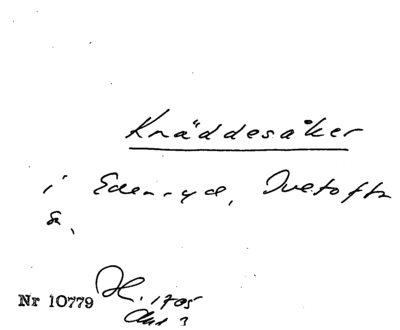 Knäddesåker
i Edenryd, Ivetofta
sn.
Nr 10779 H. 1705